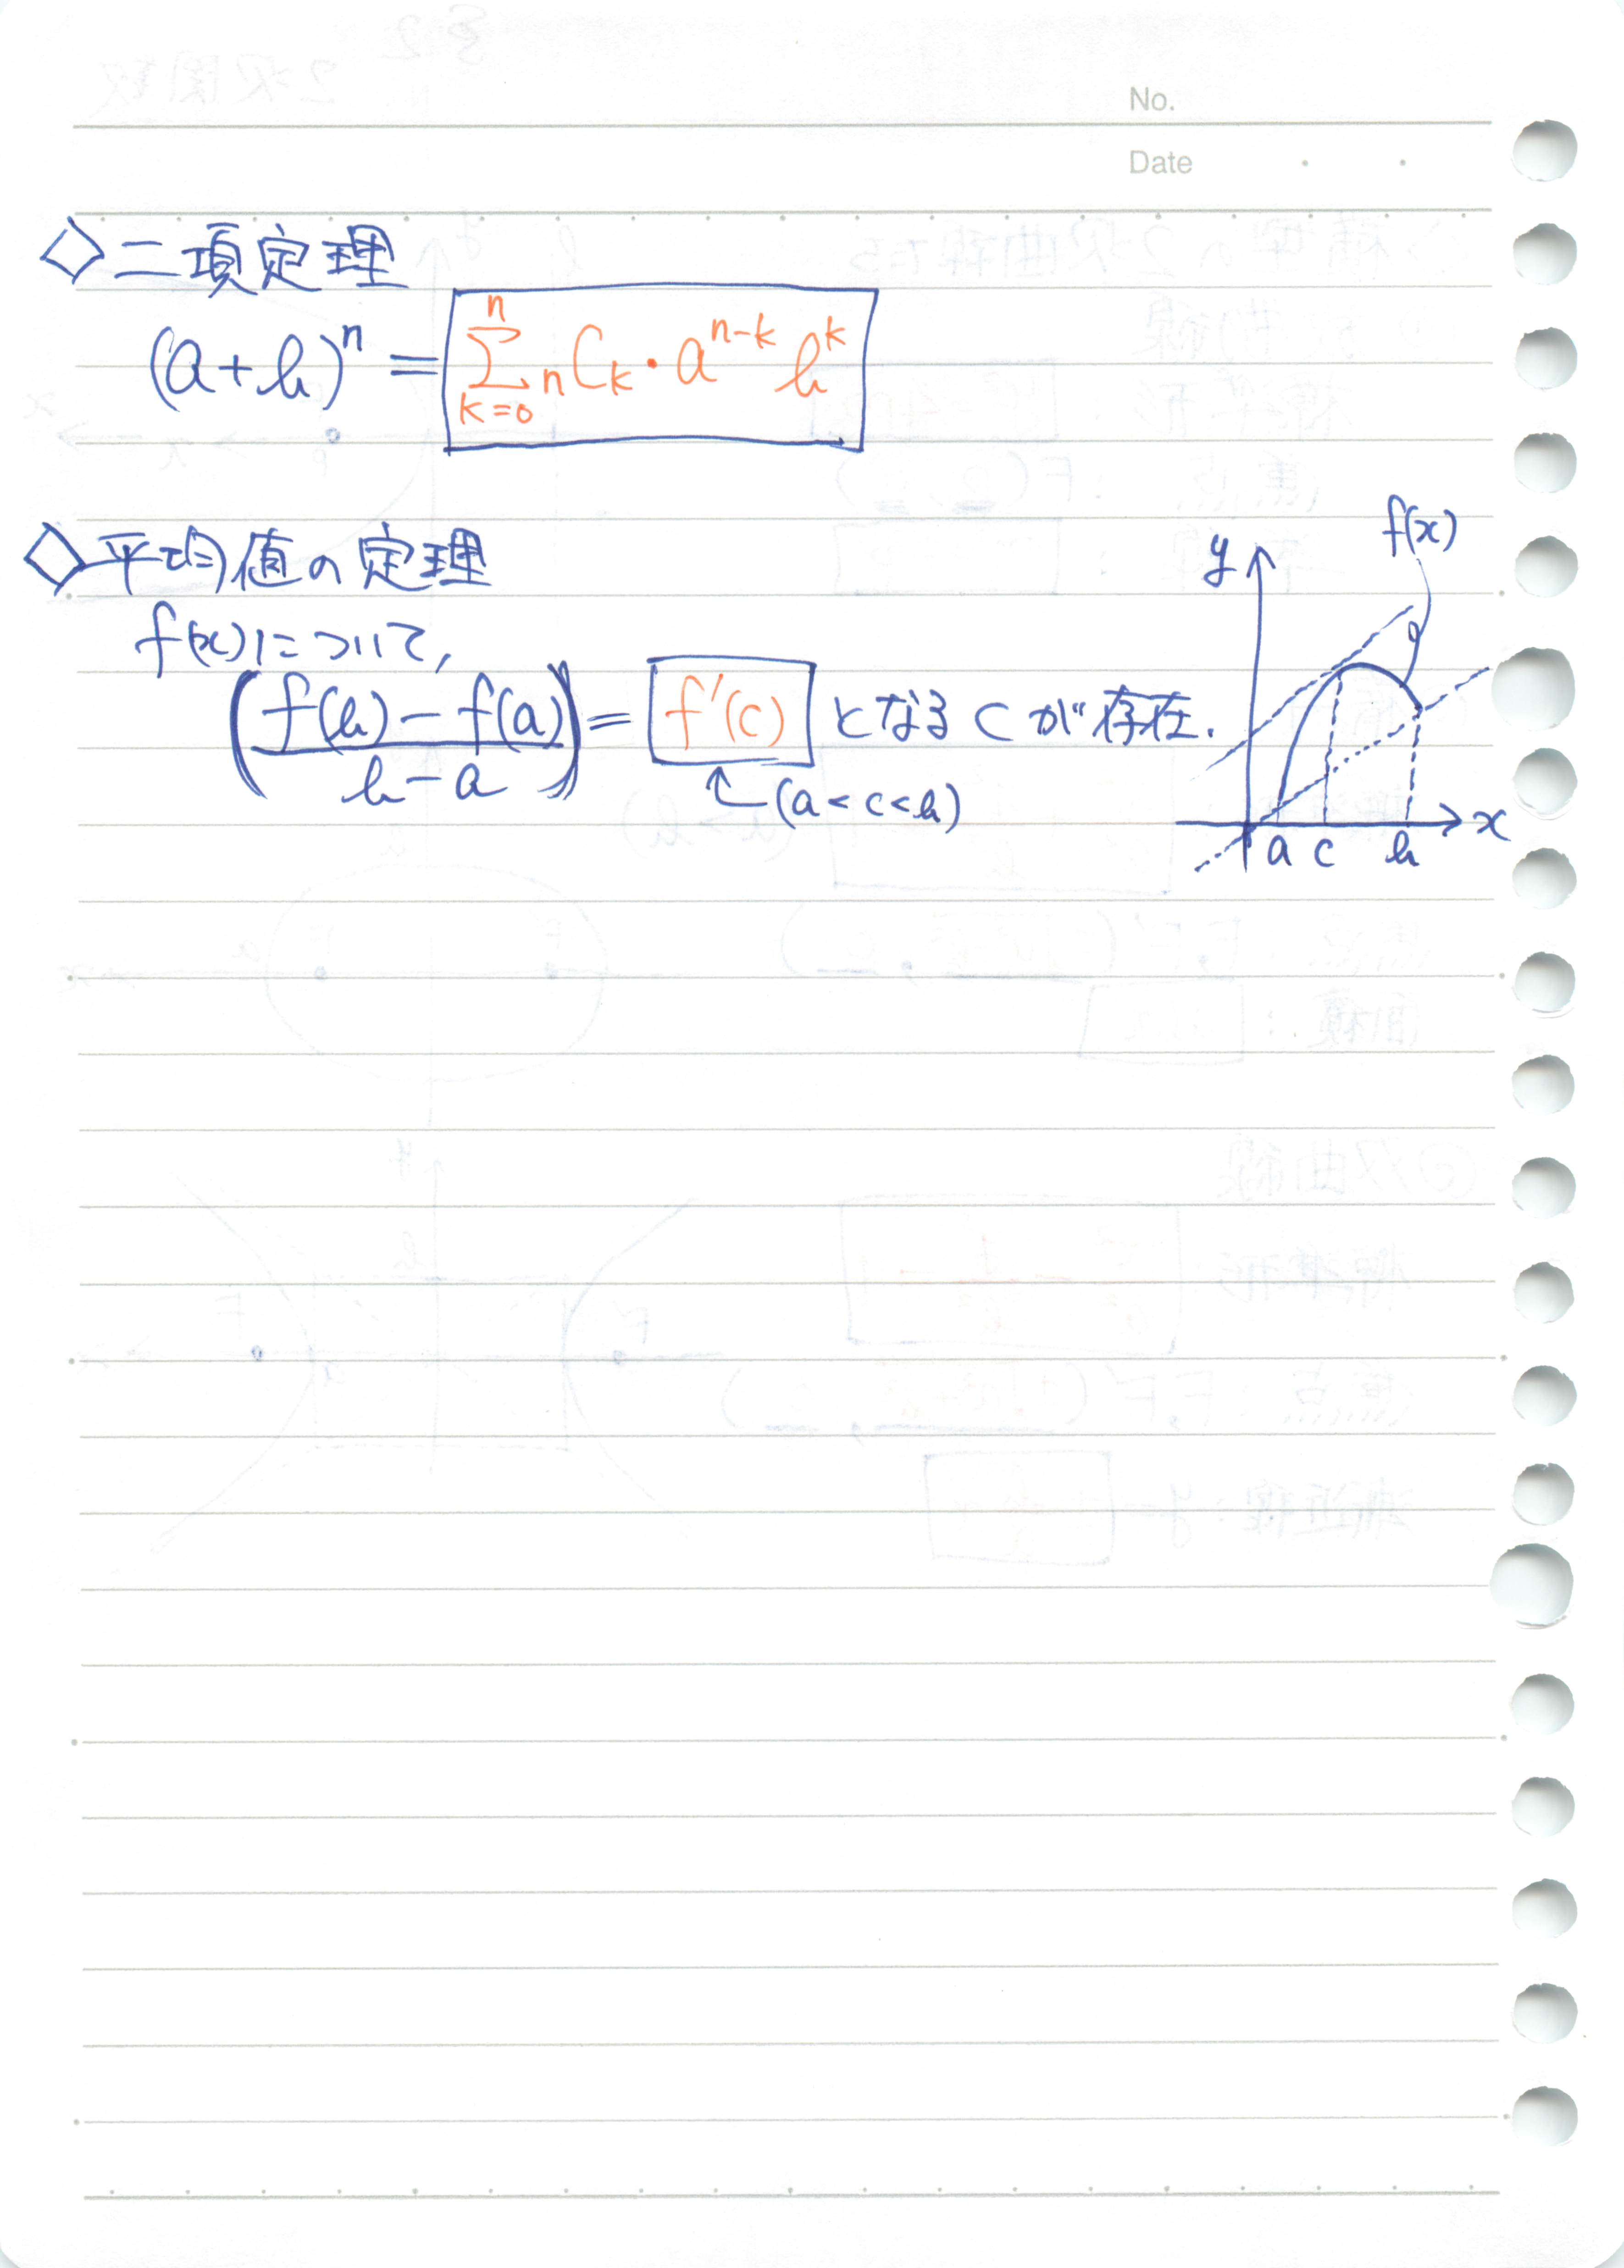 No.
Date
◇二項定理
(a+b)^n = \sum_{k=0}^{n} {}_nC_k・a^{n-k} b^k
◇平均値の定理
f(x)について,
((f(b)-f(a))/(b-a)) = f'(c) となるcが存在.
(a<c<b)
f(x)
y
x
a c b